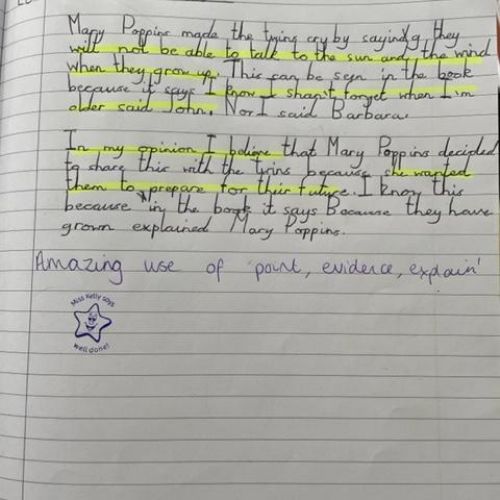 Mary Poppins made the twins cry by saying they
will not be able to talk to the sun and the wind
when they grow up. This can be seen in the book
because it says I know I shan't forget when I'm
older said John. Nor I said Barbara.
In my opinion I believe that Mary Poppins decided
to share this with the twins because she wanted
them to prepare for their future. I know this
because in the book it says Because they have
grown explained Mary Poppins.
Amazing use of 'point, evidence, explain'
Miss Kelly says
well done!